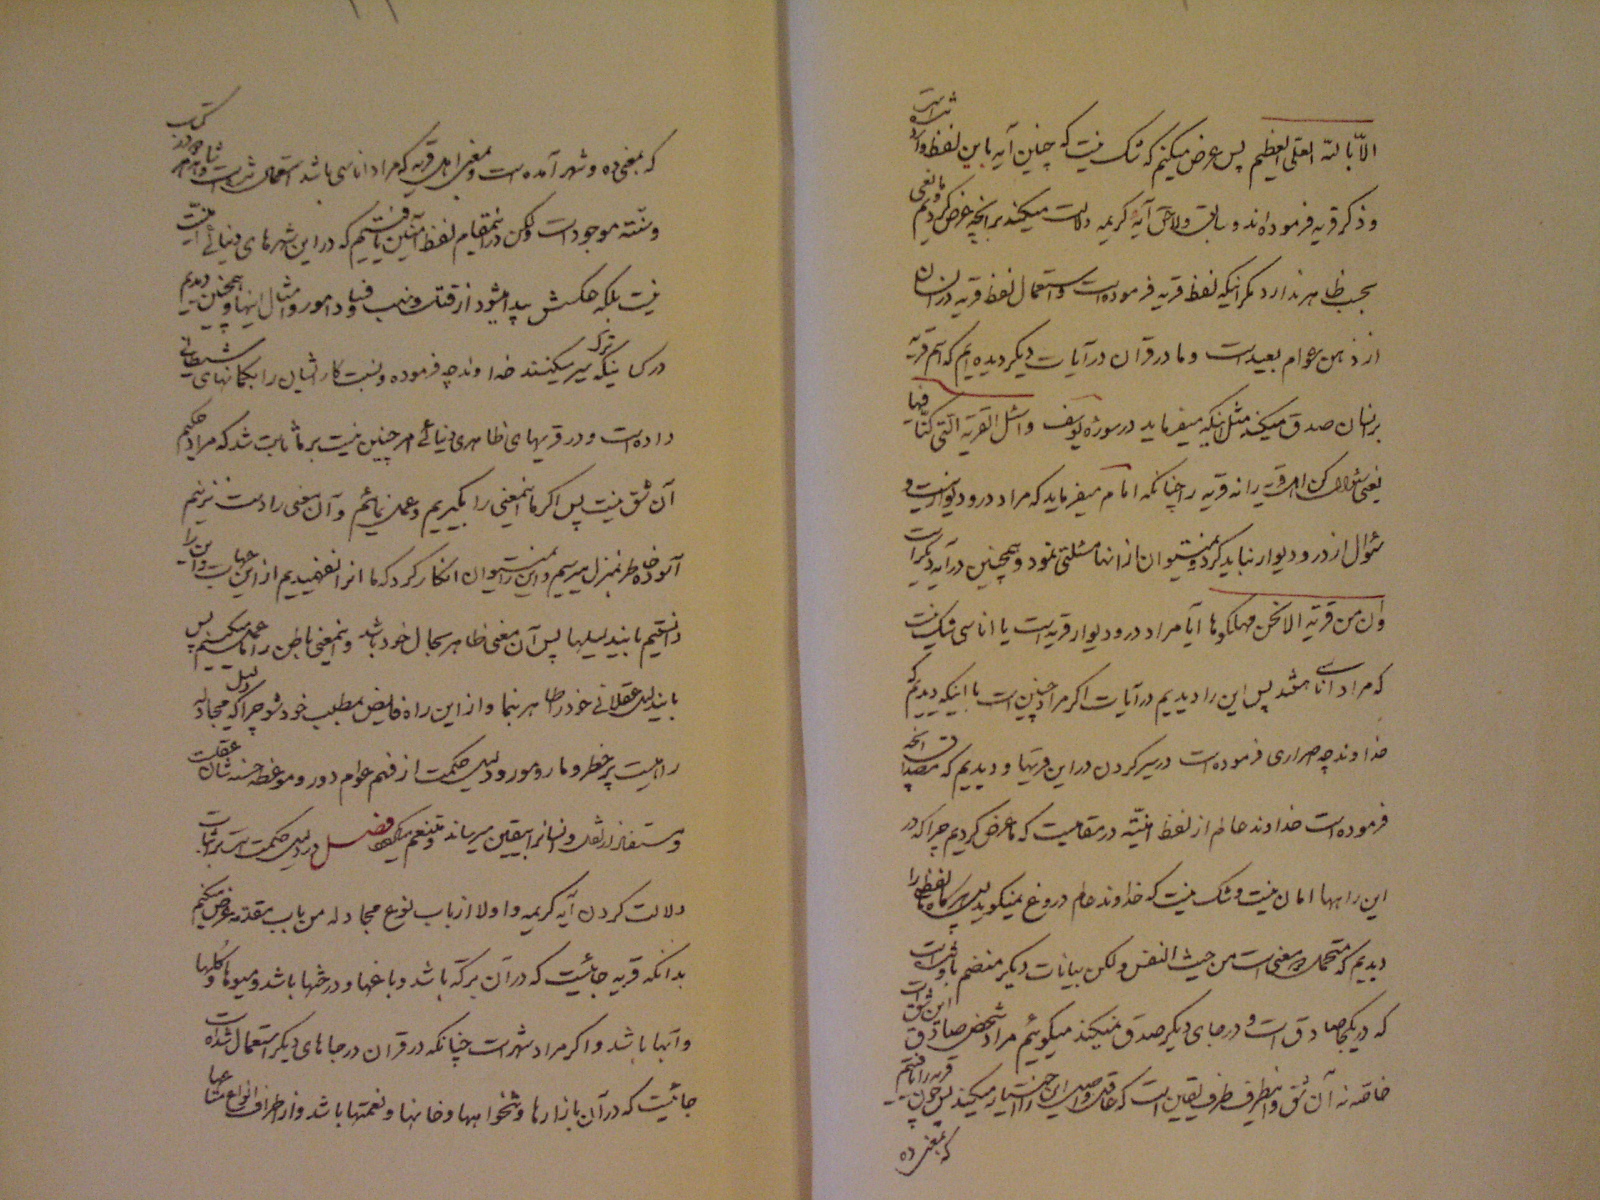 الا بالله العلی العظیم پس عرض میکنم که شک نیست که چنین آیه باین لفظ وارد شده است
و ذکر قریه فرموده‌اند و سابق و لاحق آیه کریمه دلالت میکند بر آنچه عرض کردیم و مانعی
بحسب ظاهر ندارد دیگر اینکه لفظ قریه فرموده است و استعمال لفظ قریه در انسان
از ذهن عوام بعید است و ما در قرآن در آیات دیگر دیده‌ایم که اسم قریه
بر انسان صدق میکند مثل اینکه میفرماید در سوره یوسف واسئل القریة التی کنا فیها
یعنی سؤال کن اهل قریه را نه قریه را چنانکه امام میفرماید که مراد در و دیوار نیست و
سؤال از در و دیوار نباید کرد و نمیتوان از آنها مسئلتی نمود و همچنین در آیه دیگر است
وان من قریة الا نحن مهلکوها آیا مراد در و دیوار قریه است یا اناسی شک نیست
که مراد اناسی هستند پس این را دیدیم در آیات اگر مراد چنین است با اینکه دیدیم که
خداوند چه اصراری فرموده است در سیر کردن در این قریها و دیدیم که مصداق آنچه
فرموده است خداوند عالم از لفظ آمنین نه در مقامیست که ما عرض کردیم چرا که در
این راهها امان نیست و شک نیست که خداوند عالم دروغ نمیگوید پس هرگاه لفظی را
دیدیم که متحمل دو معنی است من حیث النفس ولکن بیانات دیگر منضم باو شده است
که در یکجا صادق است و در جای دیگر صدق نمیکند میگوئیم مراد شخص صادق این شق است
خاصه نه آن شق و اینطرف طرف یقین است که عاقل این را اختیار میکند پس چون قریه را یافتیم
که بمعنی ده
که بمعنی ده و شهر آمده است و بمعنی اهل قریه که مراد اناسی باشد استعمال شده است و شاهد هم در کتاب
و سنّت موجود است ولکن در اینمقام لفظ آمنین یافتیم که در این شهرهای دنیائی امنیت
نیست بلکه عکسش پیدا میشود از قتل و نهب و فساد امور و امثال اینها و همچنین دیدیم
در کسانیکه ترک سیر میکنند خداوند چه فرموده و نسبت کار ایشان را بگمانهای شیطانی
داده است و در قریهای ظاهری دنیائی امر چنین نیست بر ما ثابت شد که مراد حکیم
آن شق نیست پس اگر ما اینمعنی را بگیریم و عمل نمائیم و آن معنی را دست نزنیم
آسوده خاطر بمنزل میرسیم و این را نمیتوان انکار کرد که ما آنرا نفهمیدیم از این جهات و این را
دانستیم باین دلیلها پس آن معنی ظاهر بحال خود باشد و اینمعنی باطن را ما عمل میکنیم پس
باین دلیل عقلانی خود را ظاهر بنما و از این راه فایض بمطلب خود شو چرا که دلیل مجادله
راهیست پر خطر و مار و مور و دلیل حکمت از فهم عوام دور و موعظه حسنه شأن عقلست
و مستفاد از نقل و انسانرا بیقین میرساند و متنعم میکند فصل در دلیل حکمت است بر اثبات
دلالت کردن آیه کریمه و اولا از باب نوع مجادله من باب مقدمه عرض میکنم
بدانکه قریه جائیست که در آن برکة باشد و باغها و درختها باشد و میوها و گلها
و آبها باشد و اگر مراد شهر است چنانکه در قرآن در جاهای دیگر استعمال شده است
جائیست که در آن بازارها و خانها و نعمتها باشد و از اطراف انواع متاعها